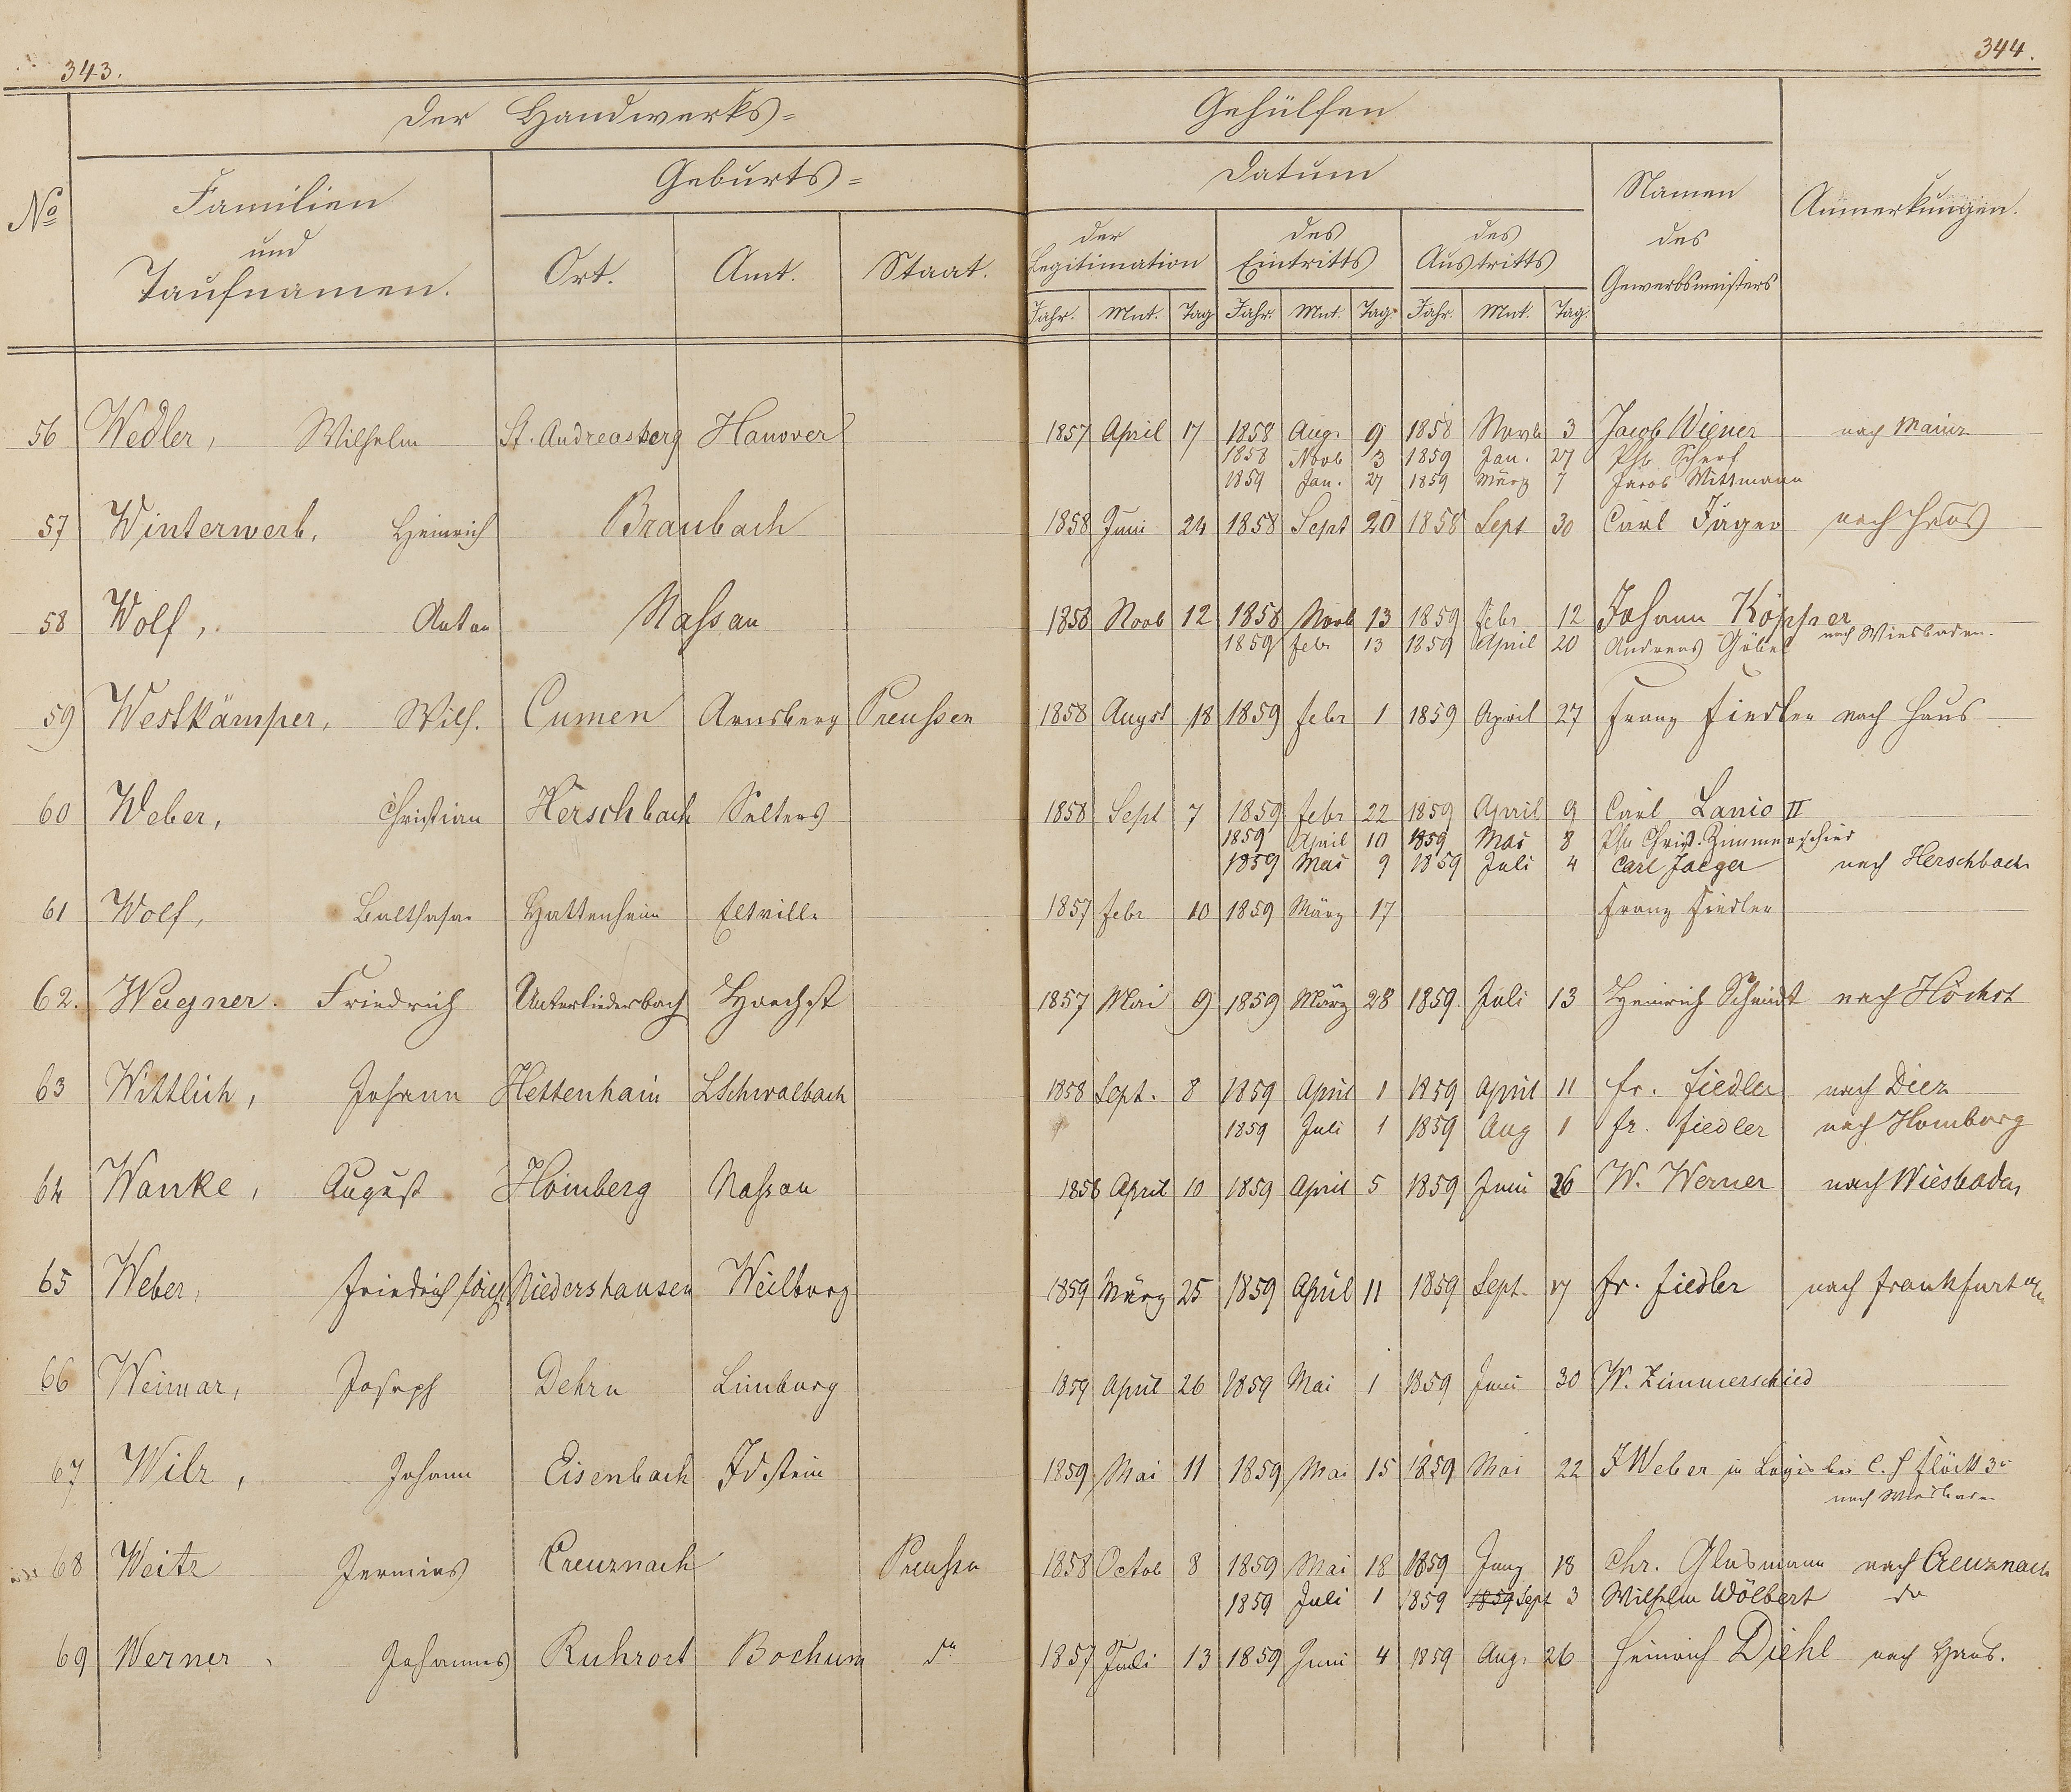 343.
344.
Der Handwerks=
Gehülfen
No
Familien
und
Taufnamen.
Geburts=
Ort.
Amt.
Staat.
Datum
der
Legitimation
des
Eintritts
des
Austritts
Jahr. Mnt. Tag Jahr. Mnt. Tag. Jahr. Mnt. Tag.
Namen
des
Gewerbsmeisters
Anmerkungen.
56 Wedler, Wilhelm St. Andreasberg Hanover 1857 April 17 1858 Aug. 9 1858 Novb 3 Jacob Wiener nach Mainz
1858 Novb 3 1859 Jan. 27 Ph. Scherf
1859 Jan. 27 1859 März 7 Jacob Wittmann
57 Winterwerb, Heinrich Braubach 1858 Juni 24 1858 Sept 20 1858 Sept 30 Carl Jäger nach
58 Wolf, Anton Nassau 1858 Novb 12 1858 Novb 13 1859 Febr 12 Johann Köpper
1859 Febr 13 1859 April 20 Andreas Göbel nach Wiesbaden.
59 Westkämper, Wilh. Cumen Arnsberg Preussen 1858 Augst 18 1859 Febr 1 1859 April 27 Franz Fiedler nach Haus
60 Weber, Christian Herschbach Selters 1858 Sept 7 1859 Febr 22 1859 April 9 Carl Lanio II
1859 April 10 1859 Mai 8 Ph. Christ. Zimmerschied
1859 Mai 9 1859 Juli 4 Carl Jaeger nach Herschbach
61 Wolf, Balthasar Hattenheim Eltville 1857 Febr 10 1859 März 17 Franz Fiedler
62. Wagner. Friedrich Unterliederbach Hoechst 1857 Mai 9 1859 März 28 1859. Juli 13 Heinrich Schmidt nach Höchst
63 Wittlich, Johann Hettenhain LSchwalbach 1858 Sept. 8 1859 April 1 1859 April 11 Fr. Fiedler nach Diez
1859 Juli 1 1859 Aug 1 Fr. Fiedler nach Homburg
64 Wanke, August Hömberg Nassau 1858 April 10 1859 April 5 1859 Juni 26 W. Werner nach Wiesbaden
65 Weber, Friedrich Niedershausen Weilburg 1859 März 25 1859 April 11 1859 Sept. 17 Fr. Fiedler nach Frankfurt a/m
66 Weimar, Joseph Dehrn Limburg 1859 April 26 1859 Mai 1 1859 Juni 30 W. Zimmerschied
67 Wilz, Johann Eisenbach Idstein 1859 Mai 11 1859 Mai 15 1859 Mai 22 J Weber in Logis bei C. H Flöck
nach Wiesbaden
68 Weitz Jermias Creuznach Preussen 1858 Octob 8 1859 Mai 18 1859 Juny 18 Chr. Glasmann nach Creuznach
1859 Juli 1 1859 1859 Sept 3 Wilhelm Wölbert do
69 Werner, Johannes Ruhrort Bochum do 1857 Juli 13 1859 Juni 4 1859 Aug. 26 Heinrich Diehl nach Haus.